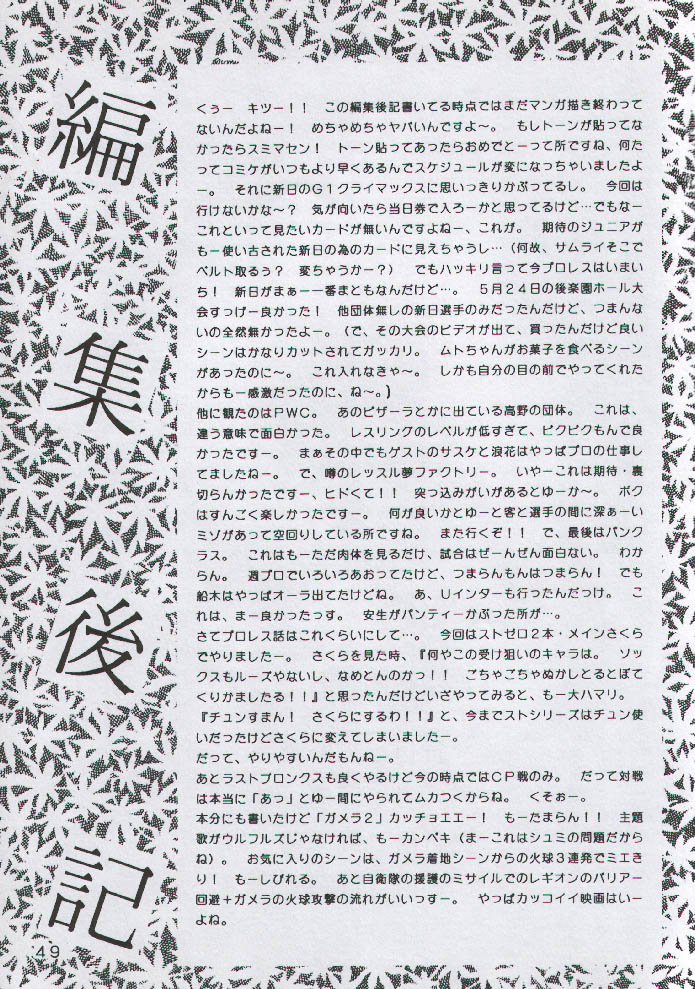 編集後記
くぅー　キツー！！　この編集後記書いてる時点ではまだマンガ描き終わって
ないんだよねー！　めちゃめちゃヤバいんですよ～。　もしトーンが貼ってな
かったらスミマセン！　トーン貼ってあったらおめでとーって所ですね、何た
ってコミケがいつもより早くあるんでスケジュールが変になっちゃいましたよ
ー。　それに新日のＧ１クライマックスに思いっきりかぶってるし。　今回は
行けないかな～？　気が向いたら当日券で入ろーかと思ってるけど…でもなー
これといって見たいカードが無いんですよねー、これが。　期待のジュニアが
もー使い古された新日の為のカードに見えちゃうし…（何故、サムライそこで
ベルト取るぅ？　変ちゃうかー？）　でもハッキリ言って今プロレスはいまい
ち！　新日がまぁー一番まともなんだけど…。　５月２４日の後楽園ホール大
会すっげー良かった！　他団体無しの新日選手のみだったんだけど、つまんな
いの全然無かったよー。（で、その大会のビデオが出て、買ったんだけど良い
シーンはかなりカットされてガッカリ。　ムトちゃんがお菓子を食べるシーン
があったのに～。　これ入れなきゃ～。　しかも自分の目の前でやってくれた
からも一感激だったのに、ね～。）
他に観たのはＰＷＣ。　あのピザーラとかに出ている高野の団体。　これは、
違う意味で面白かった。　レスリングのレベルが低すぎて、ピクピクもんで良
かったですー。　まぁその中でもゲストのサスケと浪花はやっぱプロの仕事し
てましたねー。　で、噂のレッスル夢ファクトリー。　いやーこれは期待・裏
切らんかったですー、ヒドくて！！　突っ込みがいがあるとゆーか～。　ボク
はすんごく楽しかったですー。　何が良いかとゆーと客と選手の間に深ぁーい
ミゾがあって空回りしている所ですね。　また行くぞ！！　で、最後はパンク
ラス。　これはもーただ肉体を見るだけ、試合はぜーんぜん面白ない。　わか
らん。　週プロでいろいろあおってたけど、つまらんもんはつまらん！　でも
船木はやっぱオーラ出てたけどね。　あ、Ｕインターも行ったんだっけ。　こ
れは、まー良かったっす。　安生がパンティーかぶった所が…。
さてプロレス話はこれくらいにして…。　今回はストゼロ２本・メインさくら
でやりましたー。　さくらを見た時、『何やこの受け狙いのキャラは。　ソッ
クスもルーズやないし、なめとんのかっ！！　ごちゃごちゃぬかしとるとぼて
くりかましたる！！』と思ったんだけどいざやってみると、もー大ハマリ。
『チュンすまん！　さくらにするわ！！』と、今までストシリーズはチュン使
いだったけどさくらに変えてしまいましたー。
だって、やりやすいんだもんねー。
あとラストブロンクスも良くやるけど今の時点ではＣＰ戦のみ。　だって対戦
は本当に「あっ」とゆー間にやられてムカつくからね。　くそぉー。
本分にも書いたけど「ガメラ２」カッチョエエー！　もーたまらん！！　主題
歌がウルフルズじゃなければ、もーカンペキ（まーこれはシュミの問題だから
ね）。　お気に入りのシーンは、ガメラ着地シーンからの火球３連発でミエき
り！　もーしびれる。　あと自衛隊の援護のミサイルでのレギオンのバリアー
回避＋ガメラの火球攻撃の流れがいいっすー。　やっぱカッコイイ映画はいー
よね。
49